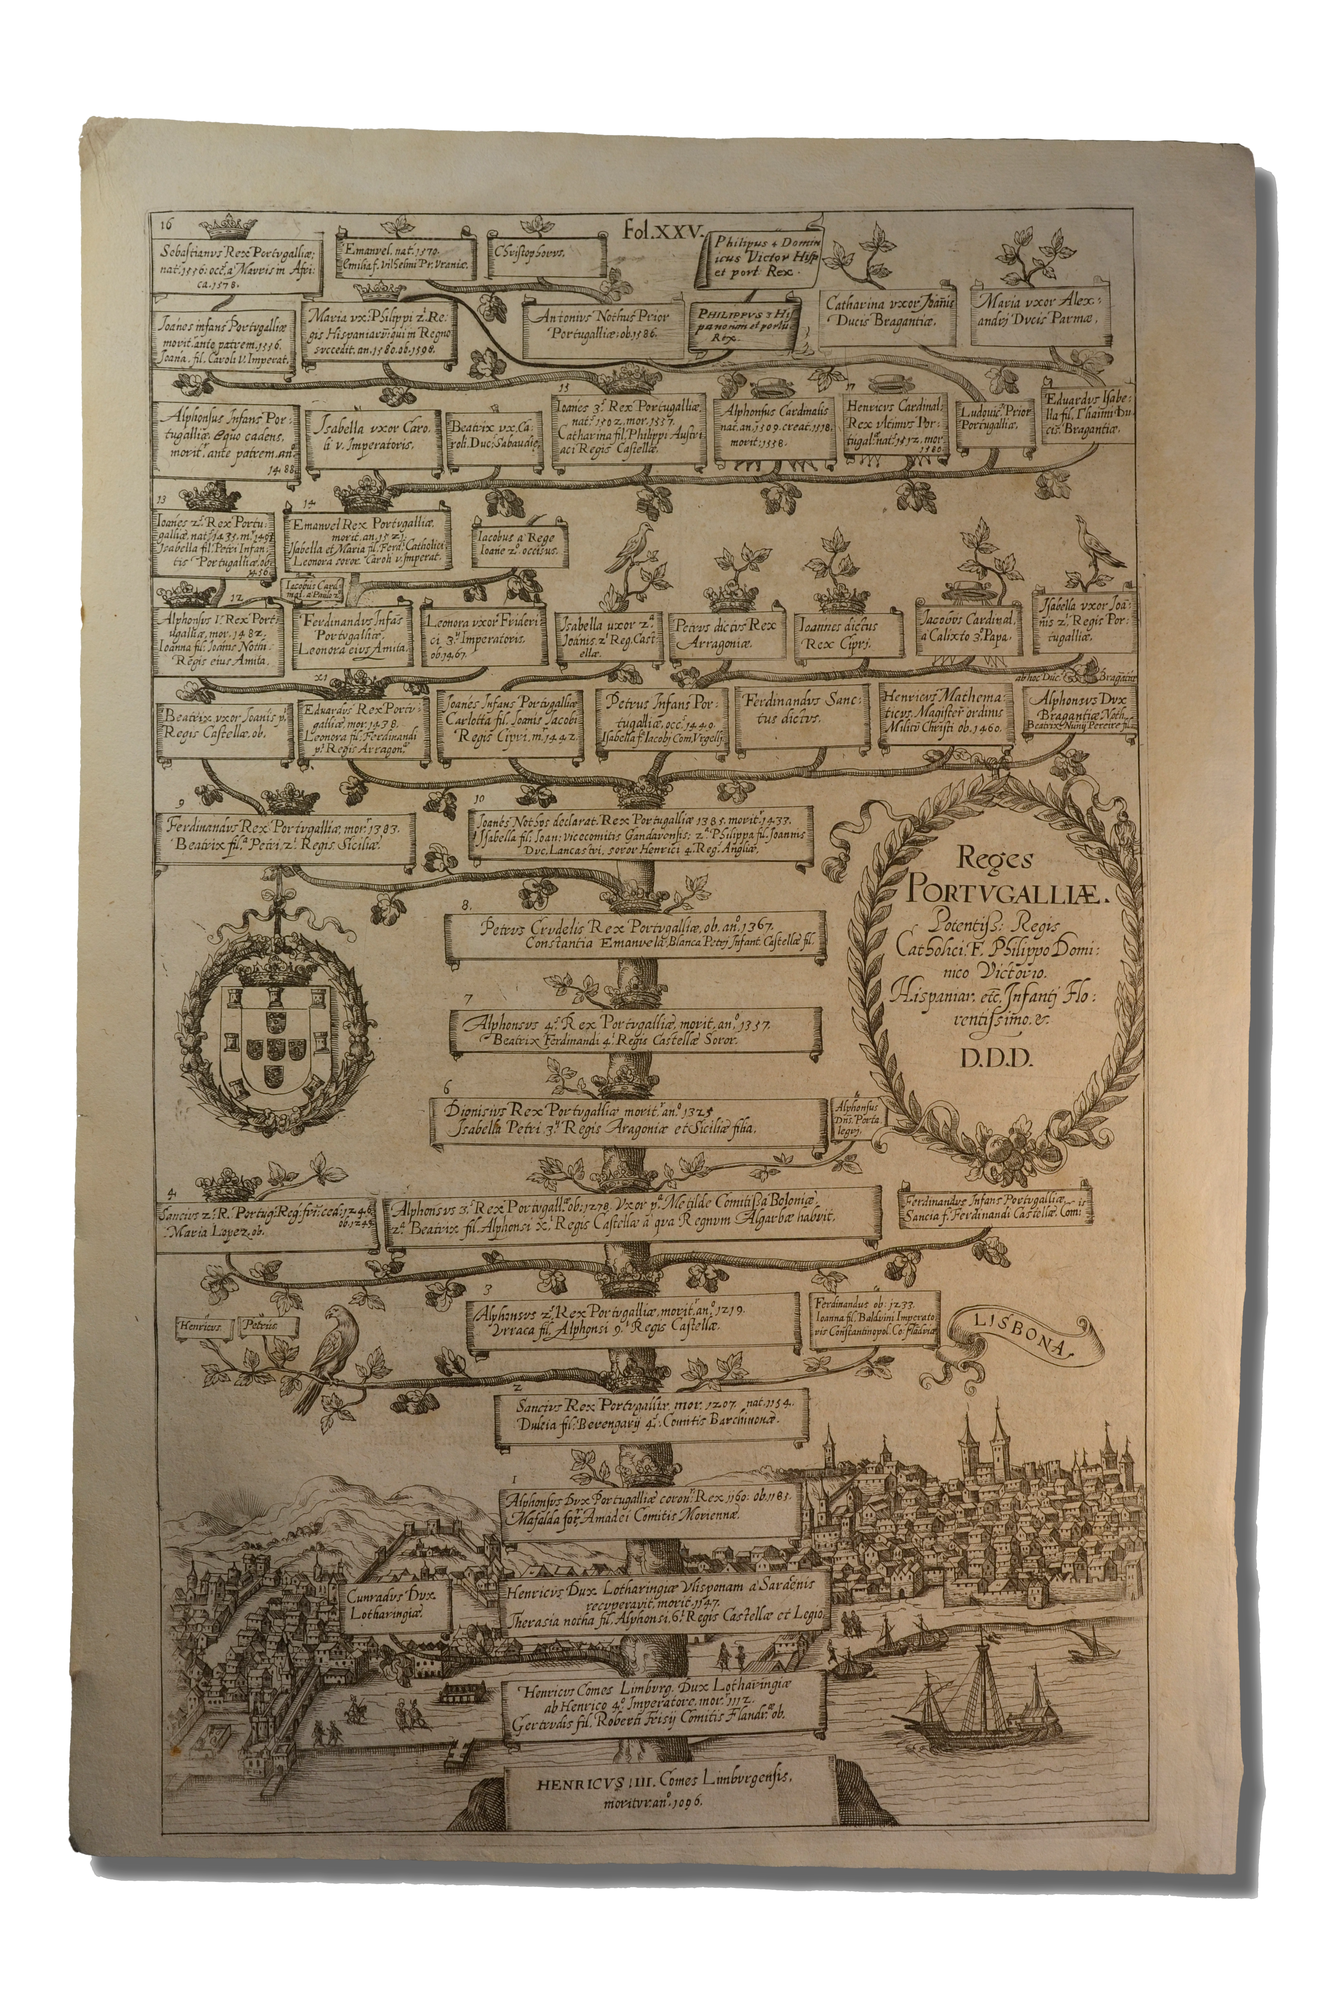 Fol. XXV.
16
Sebastianus Rex Portugalliæ;
nat. 1556. occ. a Mauris in Afri:
ca. 1578.
Emanuel. nat. 1570.
Emilia f. Vilhelmi Pr. Vraniæ.
Christophorus.
Philipus 4 Domin
icus Victor Hisp
et port. Rex.
Catharina vxor Joanis
Ducis Bragantiæ.
Maria vxor Alex:
andri Ducis Parmæ.
Ioanes infans Portugalliæ
morit. ante patrem. 1556.
Ioana. fil. Caroli V. Imperat.
Maria vx: Philippi 2i Re:
gis Hispaniarum qui in Regno
svccedit. an. 1580. ob. 1598.
Antonius Nothus Prior
Portugalliæ, ob. 1586.
PHILIPPVS 3 Hi
panorum et portu
Rex.
Alphonsus Infans Por:
tugalliæ Equo cadens,
morit. ante patrem. an.
1488
Isabella vxor Caro
li v. Imperatoris.
Beatrix vx. Ca:
roli. Duc. Sabaudie
15
Ioanes 3s Rex Portugalliæ.
nat. 1502. mor. 1557.
Catharina fil. Philippi Austri
aci Regis Castellæ.
Alphonsus Cardinalis
nat. an. 1509. creat. 1518.
morit: 1558.
17
Henricus Cardinal:
Rex vltimus Por:
tugal. nat. 1512. mor.
1580
Ludouic9 Prior
Portugalliæ.
Eduardus Isabe:
lla fil. Bu
cis. Bragantiæ.
13
Ioanes 2s Rex Portu:
galliæ. nat. 1435. m.
Isabella fil. Petri Infan:
tis Portugalliæ. ob.
1456
14
Emanuel Rex Portvgalliæ.
morit. an. 1521.
Isabella et Maria fil. Ferd. Catholici
Leonora soror Caroli v. Imperat.
Iacobus a Rege
Ioane 2o occisus.
Iacobus Card
nal. a Paulo 2o
12
Alphonsus Vs Rex Port
ugalliæ, mor. 1482.
Ioanna fil: Ioanis Nothi:
Regis eius Amita.
Ferdinandus Infas
Portugalliæ.
Leonora eius Amita.
Leonora vxor Frideri
ci 3ii Imperatoris.
ob. 1467.
Isabella uxor 2a
Ioanis 2i Reg. Cast
ellæ.
Petrus dictus Rex
Arragoniæ.
Ioannes dictus
Rex Cipri.
Iacobus Cardinal.
a Calixto 3o Papa.
Isabella vxor Ioa:
nis 2i Regis Por:
tugalliæ.
ab hoc Duc. Bragatiæ
Beatrix vxor Ioanis pi
Regis Castellæ, ob.
XI
Eduardus Rex Portu:
galliæ mor. 1438.
Leonora fil: Ferdinandi
pi Regis Arragon.
Ioanes Infans Portugalliæ
Carlotta fil. Ioanis Iacobi
Regis Cipri. m. 1442.
Petrus Infans Por:
tugalliæ, occ. 1449.
Isabella f. Iacobi Com. Vrgelli
Ferdinandus Sanc:
tus dictus.
Henricus Mathema:
ticus, Magister ordinis
Militiæ Christi ob. 1460.
Alphonsus Dux
Bragantiæ Noth.
Beatrix Nunij Pereire fil.
9
Ferdinandus Rex Portugalliæ, mor. 1383.
Beatrix fil. Petri, 2i Regis Siciliæ.
10
Ioanes Nothos declarat. Rex Portugalliæ 1385. morit. 1433.
Isabella fil: Ioan: vicecomitis Gandavensis: 2a Philippa fil. Ioannis
Duc. Lancastri, soror Henrici 4i Reg. Angliæ.
Reges
PORTVGALLIÆ.
Potentiss: Regis
Catholici. F. Philippo Domi:
nico Victorio.
Hispaniar. etc. Infanti Flo:
rentissimo. &.
D.D.D.
8.
Petrus Crudelis Rex Portugalliæ, ob. ano. 1367.
Constantia Emanuelis. Blanca Petri Infant. Castellæ fil.
7
Alphonsus 4s Rex Portugalliæ, morit. ano. 1357.
Beatrix Ferdinandi 4i Regis Castellæ Soror.
6
Dionisius Rex Portugalliæ morit. ano. 1325
Isabella Petri 3ii Regis Aragoniæ et Siciliæ filia.
Alphonsus
Dns. Porta
legri.
4
Sancius 2s R. Portug. Reg. fri. ced. 1246.
Maria Lopez. ob.
ob. 1249
Alphonsus 3s Rex Portugall. ob. 1278. Vxor pa Metilde Comitissa Boloniæ.
2a Beatrix fil. Alphonsi xi Regis Castellæ a qua Regnum Algarbæ habuit.
Ferdinandus Infans Portugalliæ.
Sancia f. Ferdinandi Castellæ. Comi
3
Alphonsus 2s Rex Portugalliæ, morit. ano. 1219.
Vrraca fil. Alphonsi 9i Regis Castellæ.
Ferdinandus ob: 1233.
Ioanna fil. Balduini Imperato
ris Constantinopol. Co. Fladriæ
Henricus.
Petrus.
LISBONA
2
Sancius Rex Portugalliæ. mor. 1207. nat. 1154.
Dulcia fil. Berengarij 4i Comitis Barchinonæ.
1
Alphonsus Dux Portugalliæ coron. Rex. 1160. ob. 1185.
Mafalda sor Amadei Comitis Moriennæ.
Cunradus Dux
Lotharingiæ.
Henricus Dux Lotharingiæ Vlisponam a Saracenis
recuperauit, morit. 1147.
Therasia notha fil. Alphonsi. 6i Regis Castellæ et Legio
Henricus Comes Limburg. Dux Lotharingiæ
ab Henrico 4o Imperatore, mor. 1112.
Gertrudis fil. Roberti Frisij Comitis Flandr. ob.
HENRICVS IIII. Comes Limburgensis,
moritur. ano. 1096.